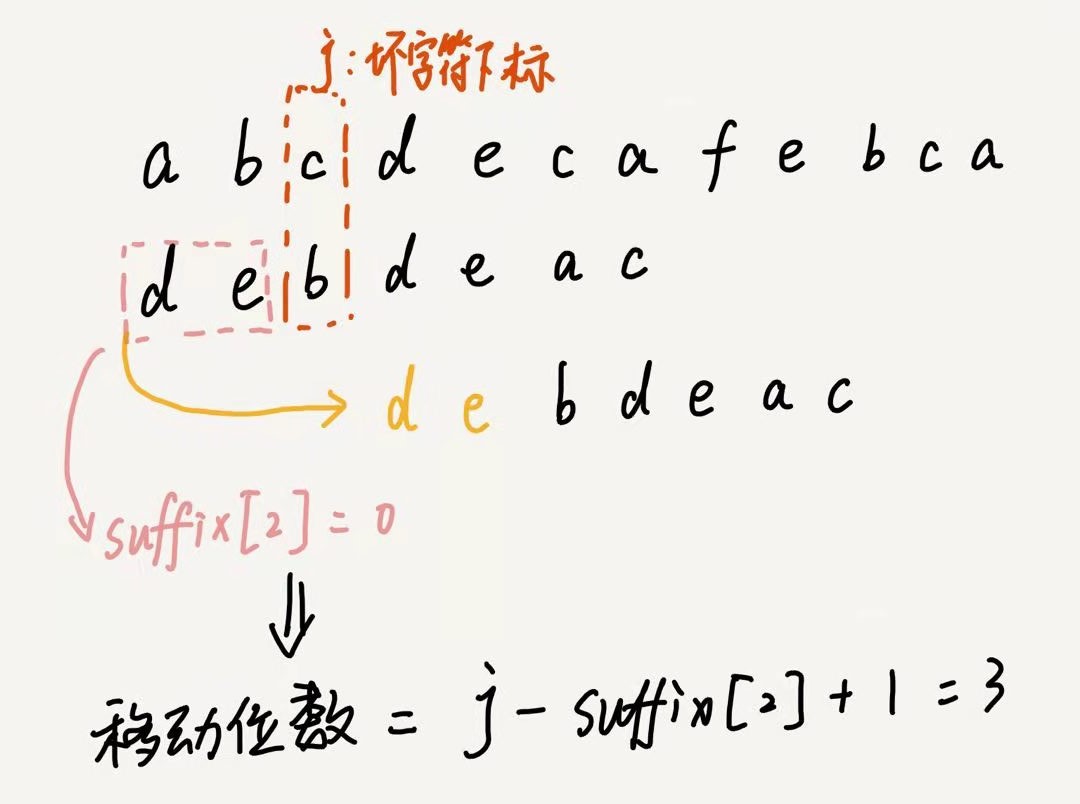 j:坏字符下标
a b c d e c a f e b c a
d e b d e a c
d e b d e a c
suffix[2] = 0
移动位数 = j - suffix[2] + 1 = 3